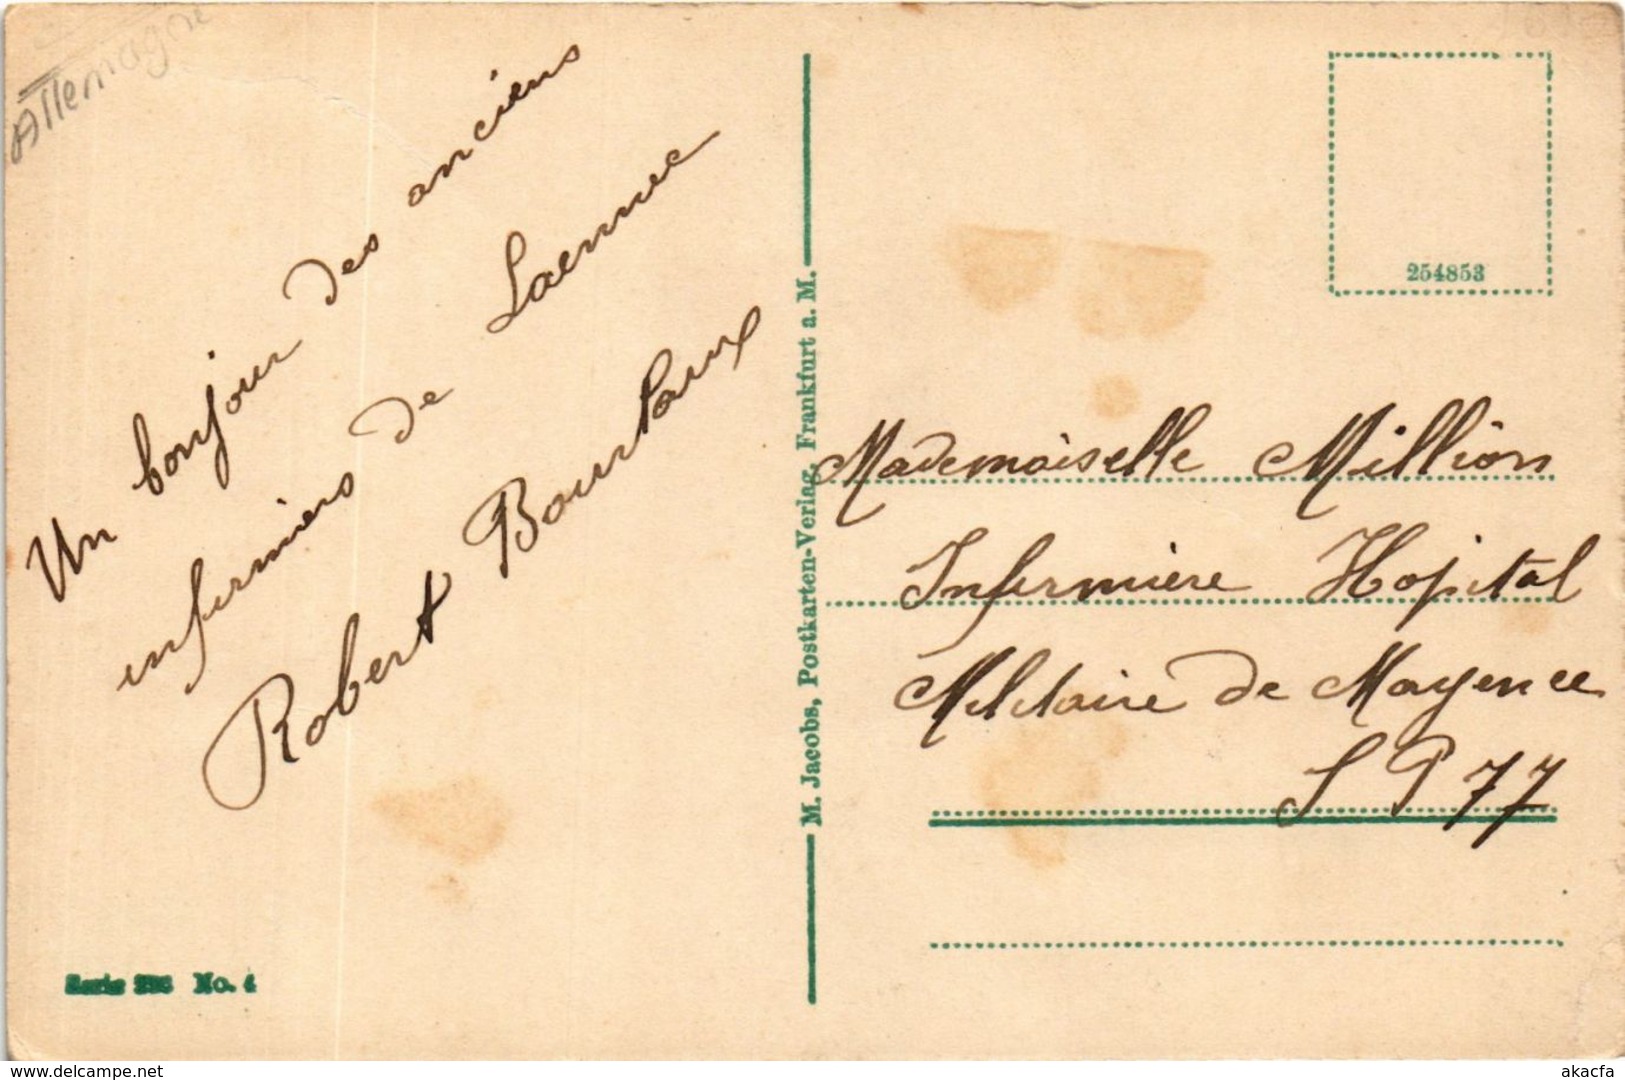 Allemagne
Un bonjour des anciens
infirmiers de Laennec
Robert Bourlaux
M. Jacobs, Postkarten-Verlag, Frankfurt a. M.
254853
Mademoiselle Million
Infirmière Hopital
Militaire de Mayence
S P 77
Serie No. 4
delcampe.net
akacfa